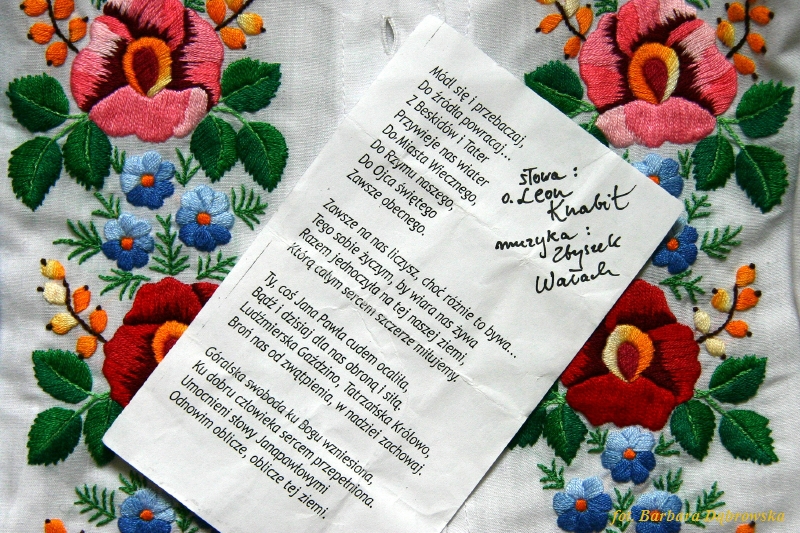 Módl się i przebaczaj,
Do źródła powracaj...
Z Beskidów i Tater
Przywieje nas wiater
Do Miasta Wiecznego,
Do Rzymu naszego,
Do Ojca świętego
Zawsze obecnego.
Zawsze na nas liczysz, choć różnie to bywa...
Tego sobie życzym, by wiara nas żywa
Razem jednoczyła na tej naszej ziemi,
Którą całym sercem szczerze miłujemy.
Ty, coś Jana Pawła cudem ocaliła,
Bądź i dzisiaj dla nas obroną i siłą,
Ludźmierska Gaździno, Tatrzańska Królowo,
Broń nas od zwątpienia, w nadziei zachowaj.
Góralska swoboda ku Bogu wzniesiona,
Ku dobru człowieka sercem przepełniona.
Umocnieni słowy Janapawłowymi
Odnowim oblicze, oblicze tej ziemi.
słowa:
o. Leon
Knabit
muzyka:
Zbyszek
Wałach
fot. Barbara Dąbrowska